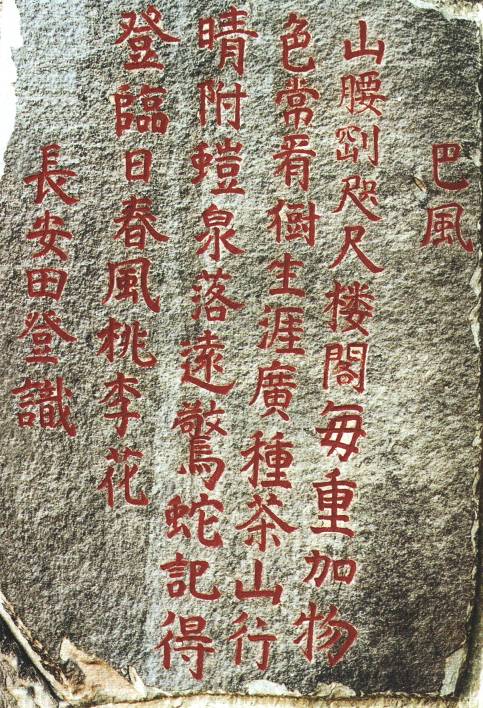 巴風
山腰劉咫尺楼閣毎重加物
色常看樹生涯廣種茶山行
晴附螘泉落遠驚蛇記得
登臨日春風桃李花
長安田登識